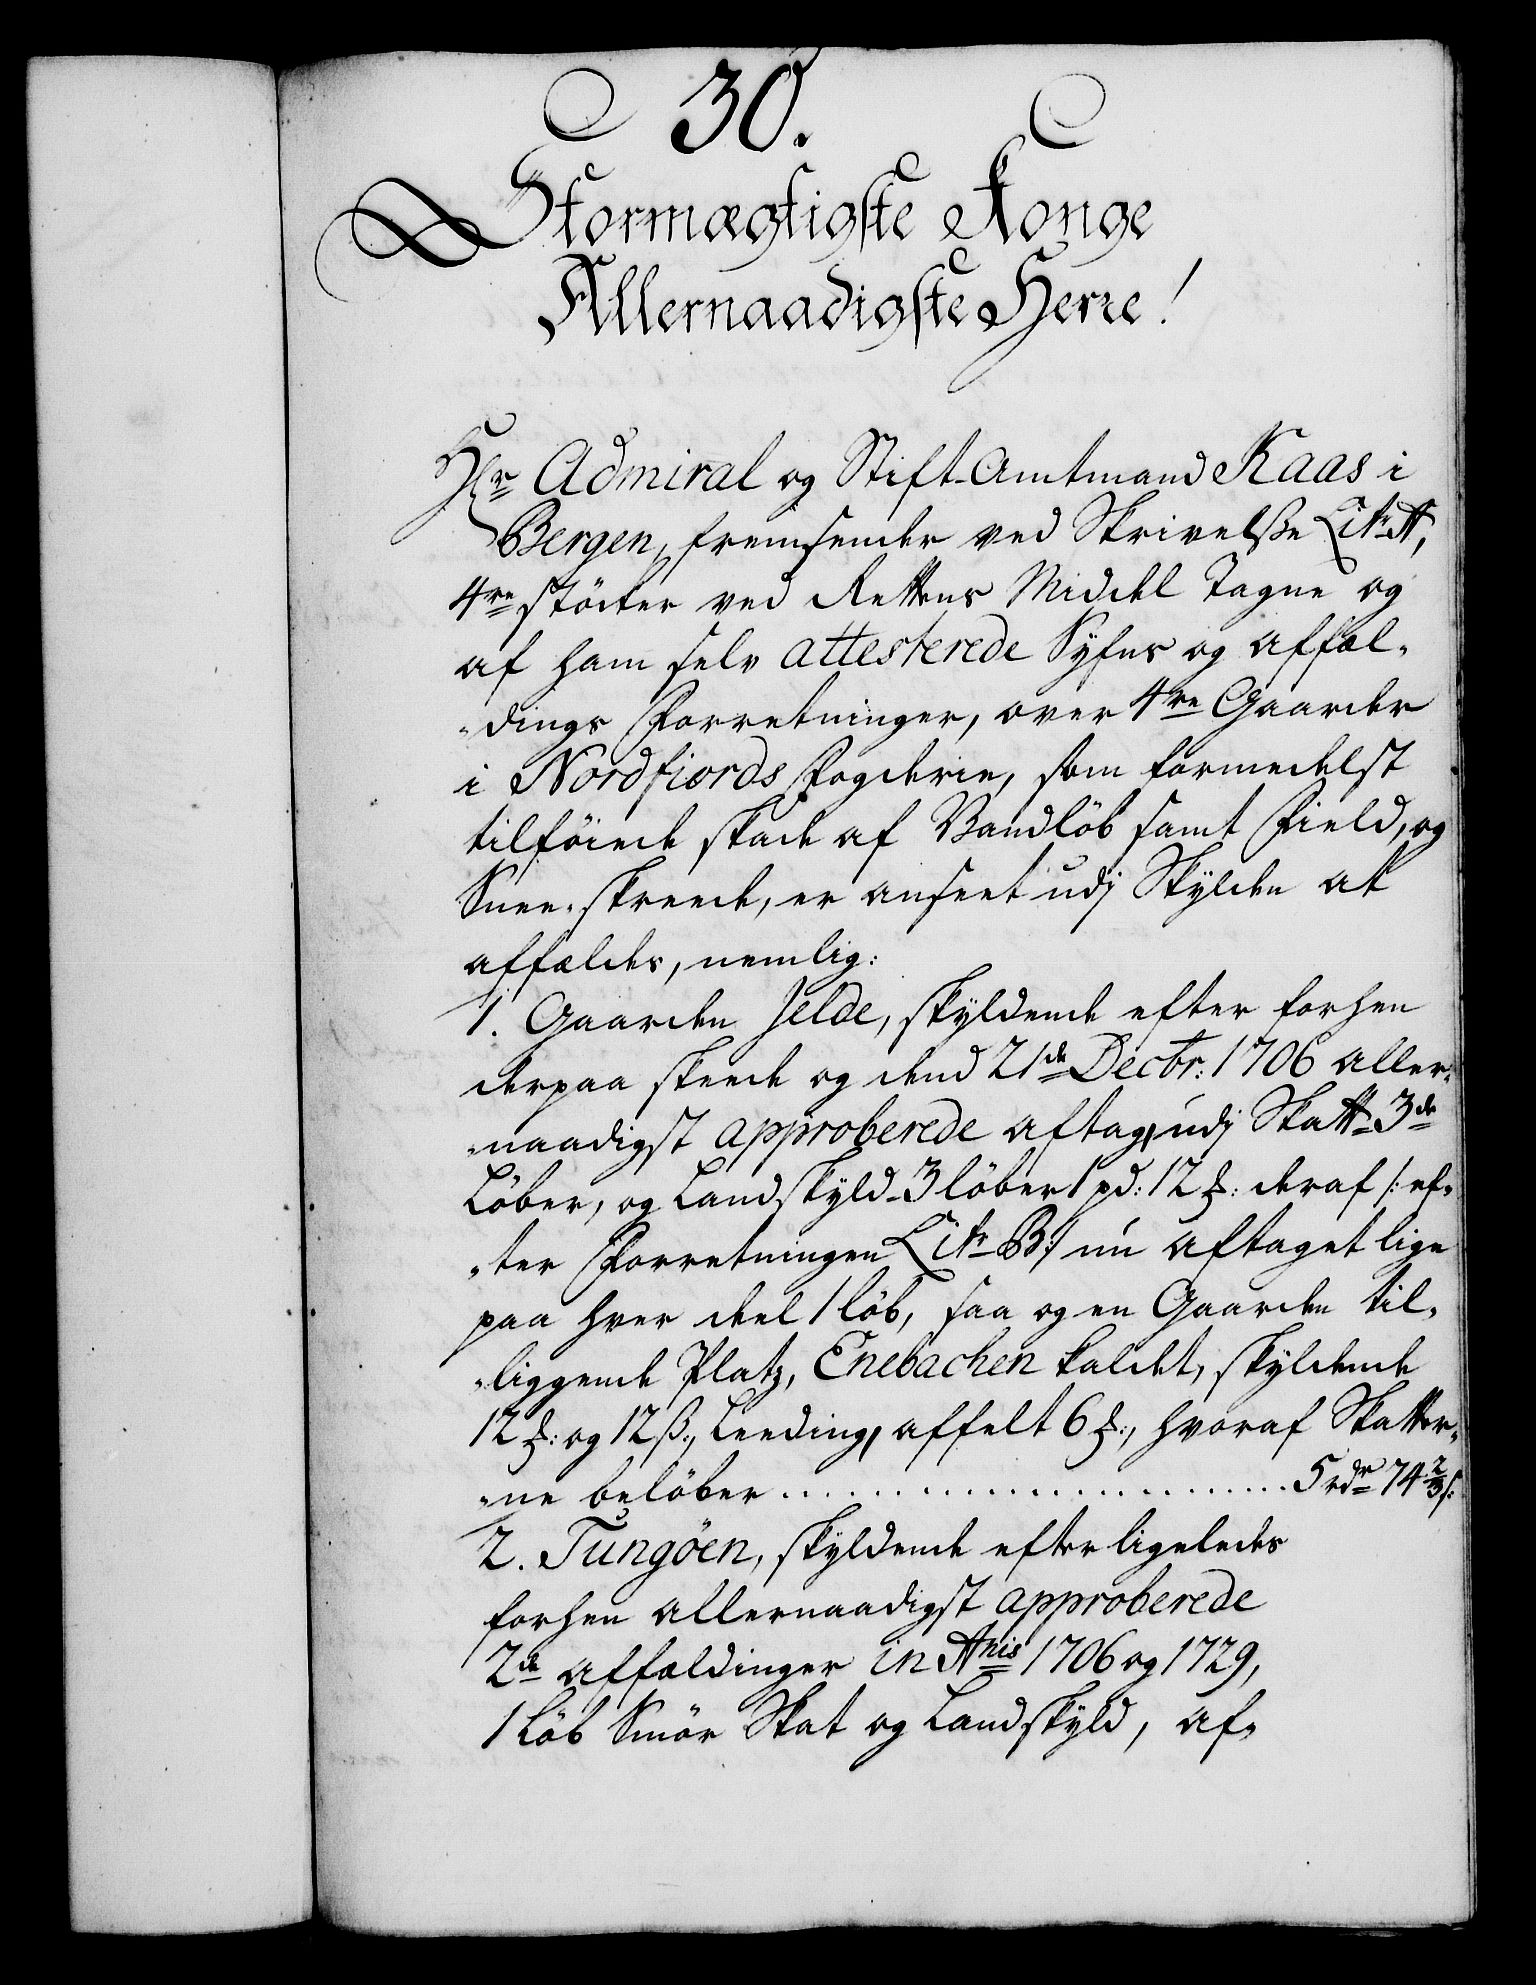 30.
Stormægtigste Konge
Allernaadigste Herre!
Hr Admiral og Stift-Amtmand Kaas i
Bergen, fremsender ved Skrivelsse Litr A,
4re støcker ved Rettens Middel Tagne og
af ham selv attesterede Syfns og affæl-
-dings Forretninger, over 4re Gaarder
i Nordfiords Fogderie, som formedelst
tilføiede skade af Vandløb samt Field, og
Snee-skreede, er anseet udj Skylden at
affældes, nemlig:
1. Gaarden Jelde, skyldende efter forhen
derpaa skeede og dend 21de Decbr: 1706 aller-
-naadigst approberede aftag, udj Skatt 3de
Løber, og Landskyld 3 løber 1 pd: 12 ℔: deraf /: ef-
-ter Forretningen Litr B :/ nu aftaget lige
paa hver deel 1 løb, saa og en Gaarden til-
-liggende Platz, Enebachen kaldet, skyldende
12 ℔: og 12 ß:, Leeding, affelt 6 ℔:, hvoraf Skatter-
-ne beløber ........................ 5 rdr 74 2/3 s:
2. Tungøen, skyldende efter ligeledes
forhen allernaadigst approberede
2de affældinger in Anis 1706 og 1729,
1 Løb Smør Skat og Landskyld, af-